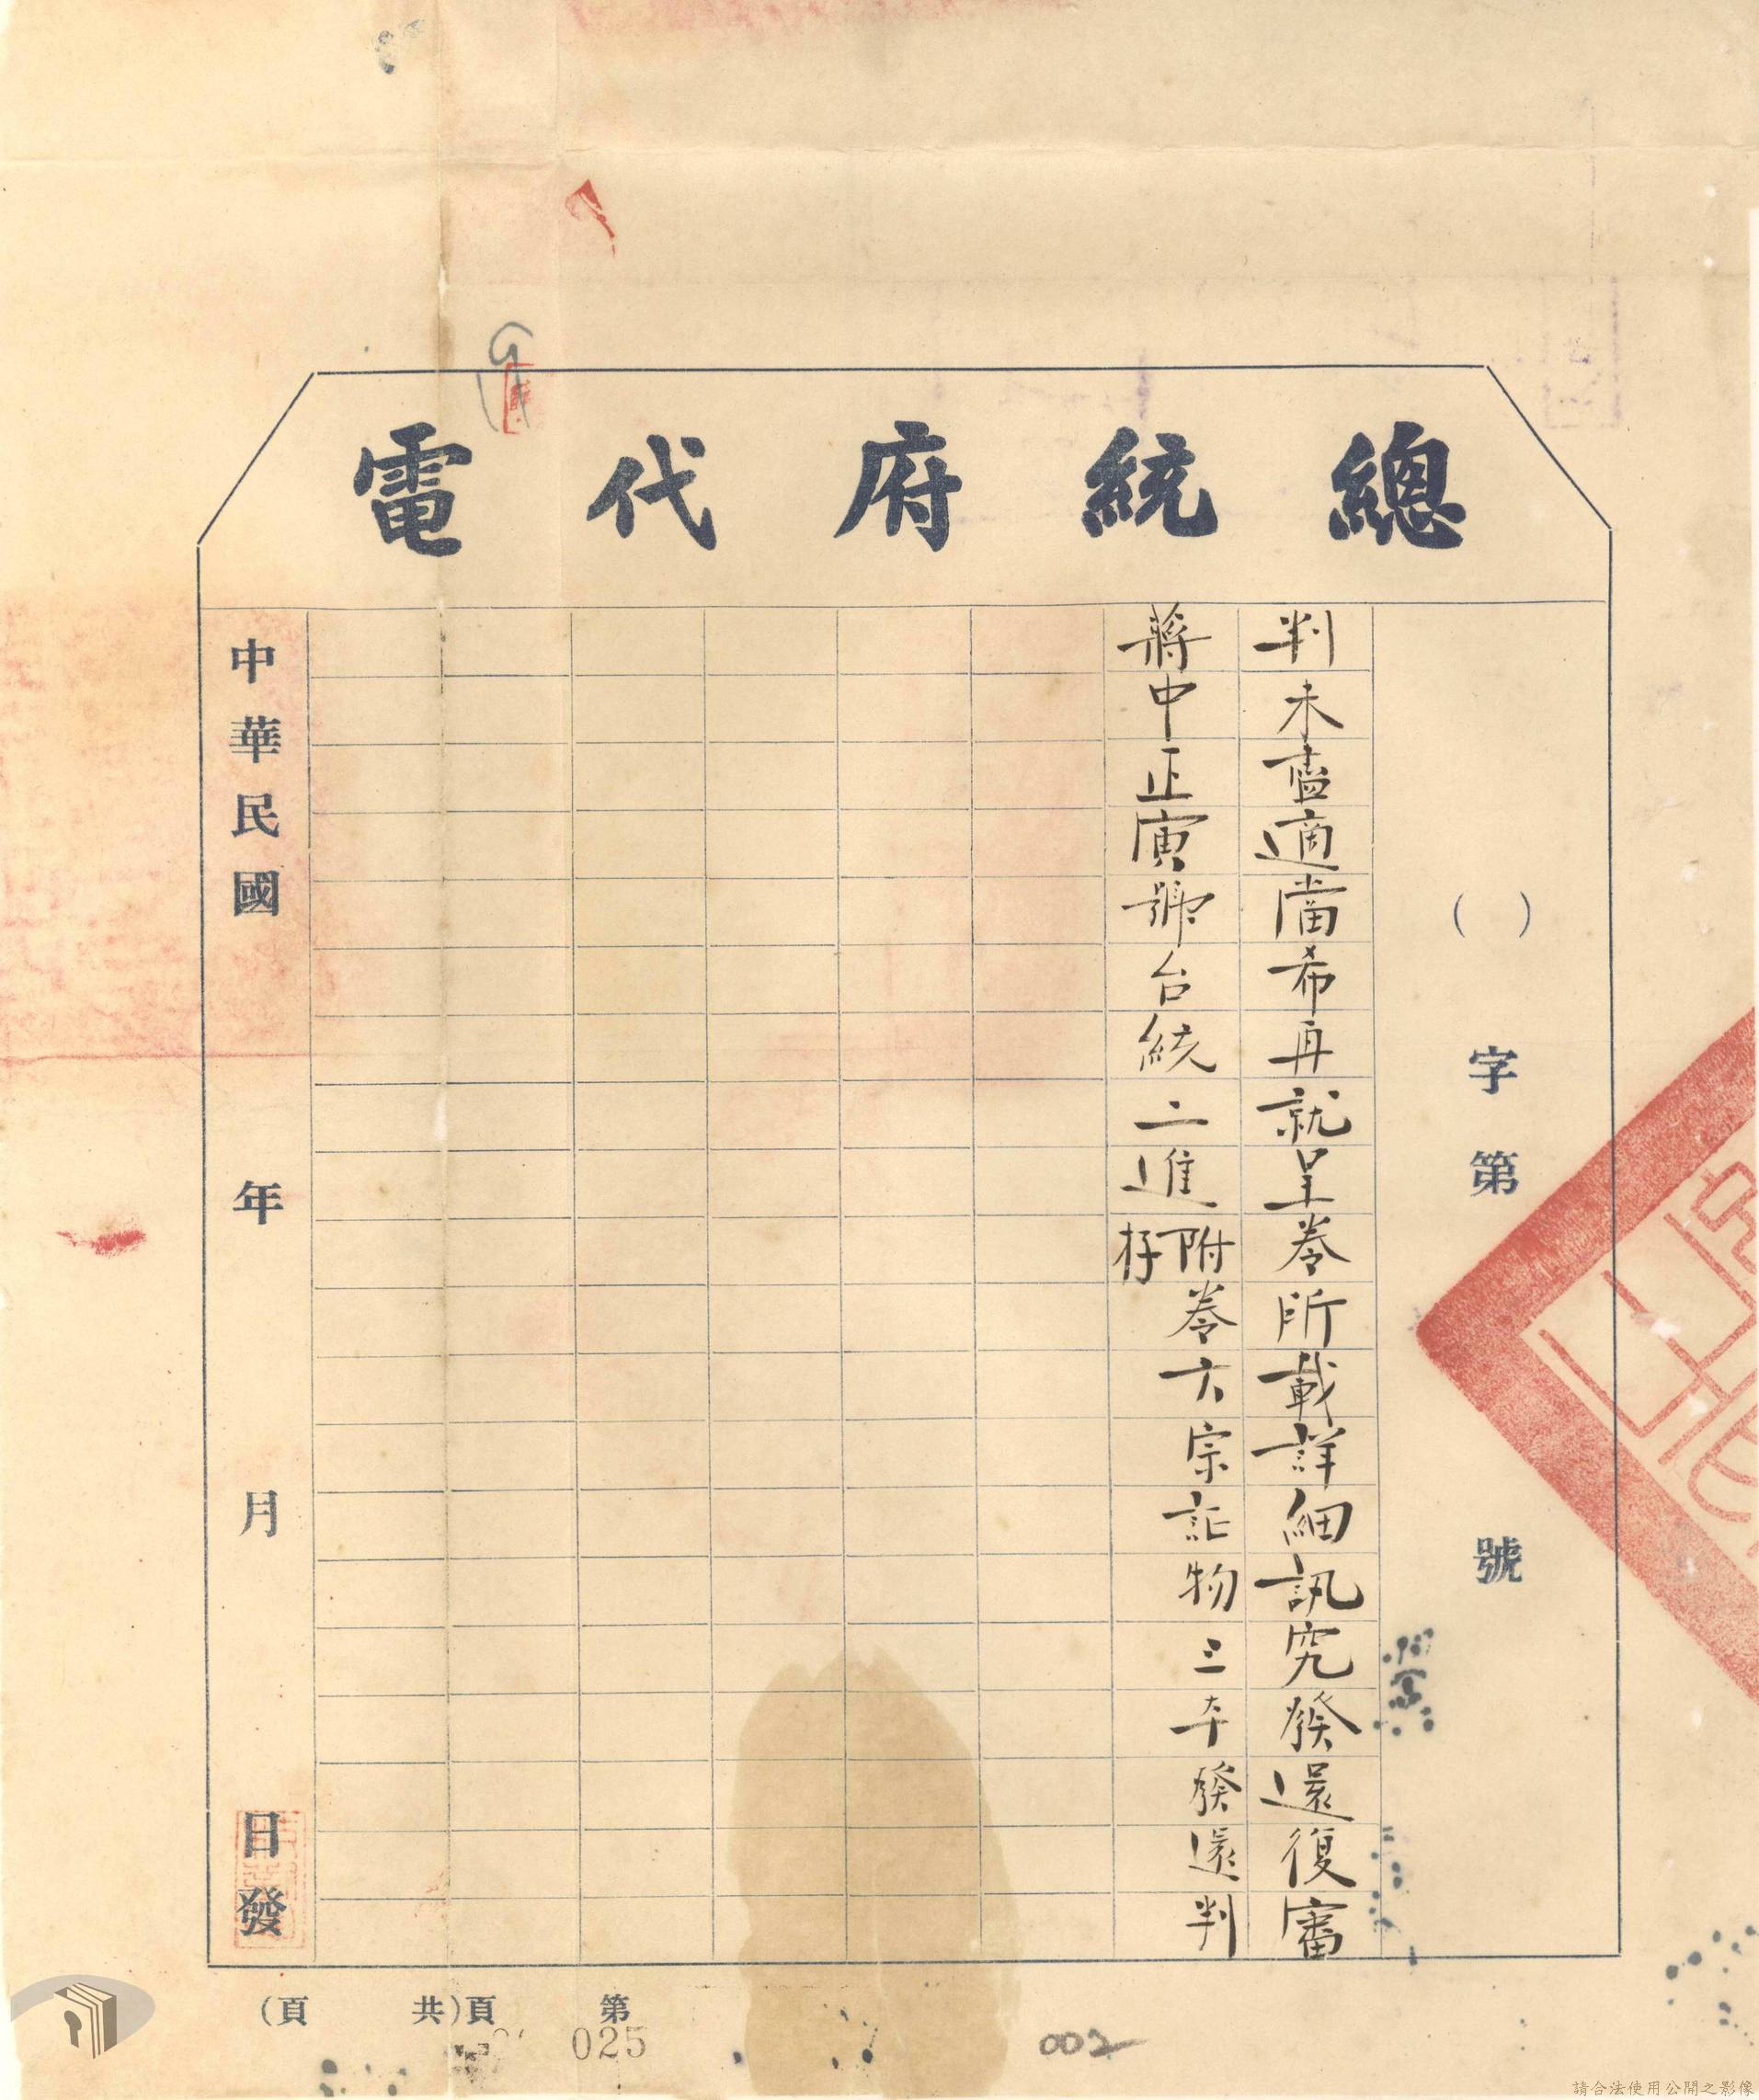 總統府代電
( )字第 號
判未盡適當希再就呈卷所載詳細訊究發還復審
蔣中正寅號台統二進附卷六宗証物三本發還判
存
中華民國 年 月 日發
第 頁(共 頁)
025
002
請合法使用公開之影像